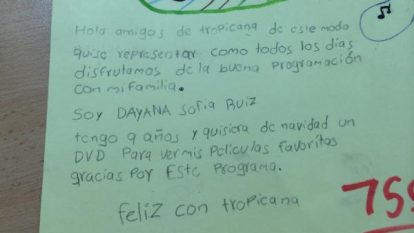 Hola amigos de tropicana de este modo
quise representar como todos los días
disfrutamos de la buena programación
con mi familia.
Soy DAYANA Sofia Ruiz
tengo 9 años y quisiera de navidad un
DVD Para ver mis Peliculas favoritas
gracias Por Este Programa.
feliz con tropicana